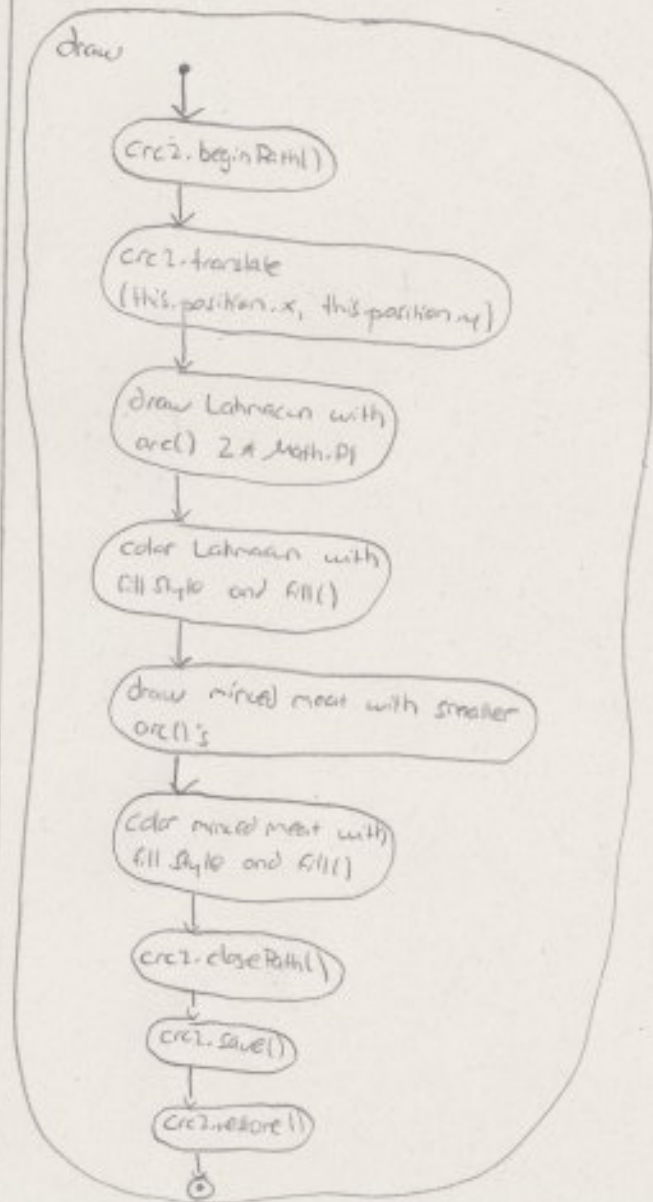 draw
crc2.beginPath()
crc2.translate
(this.position.x, this.position.y)
draw Lahmacun with
arc() 2 * Math.PI
color Lahmacun with
fillStyle and fill()
draw minced meat with smaller
arc()'s
color minced meat with
fillStyle and fill()
crc2.closePath()
crc2.save()
crc2.restore()